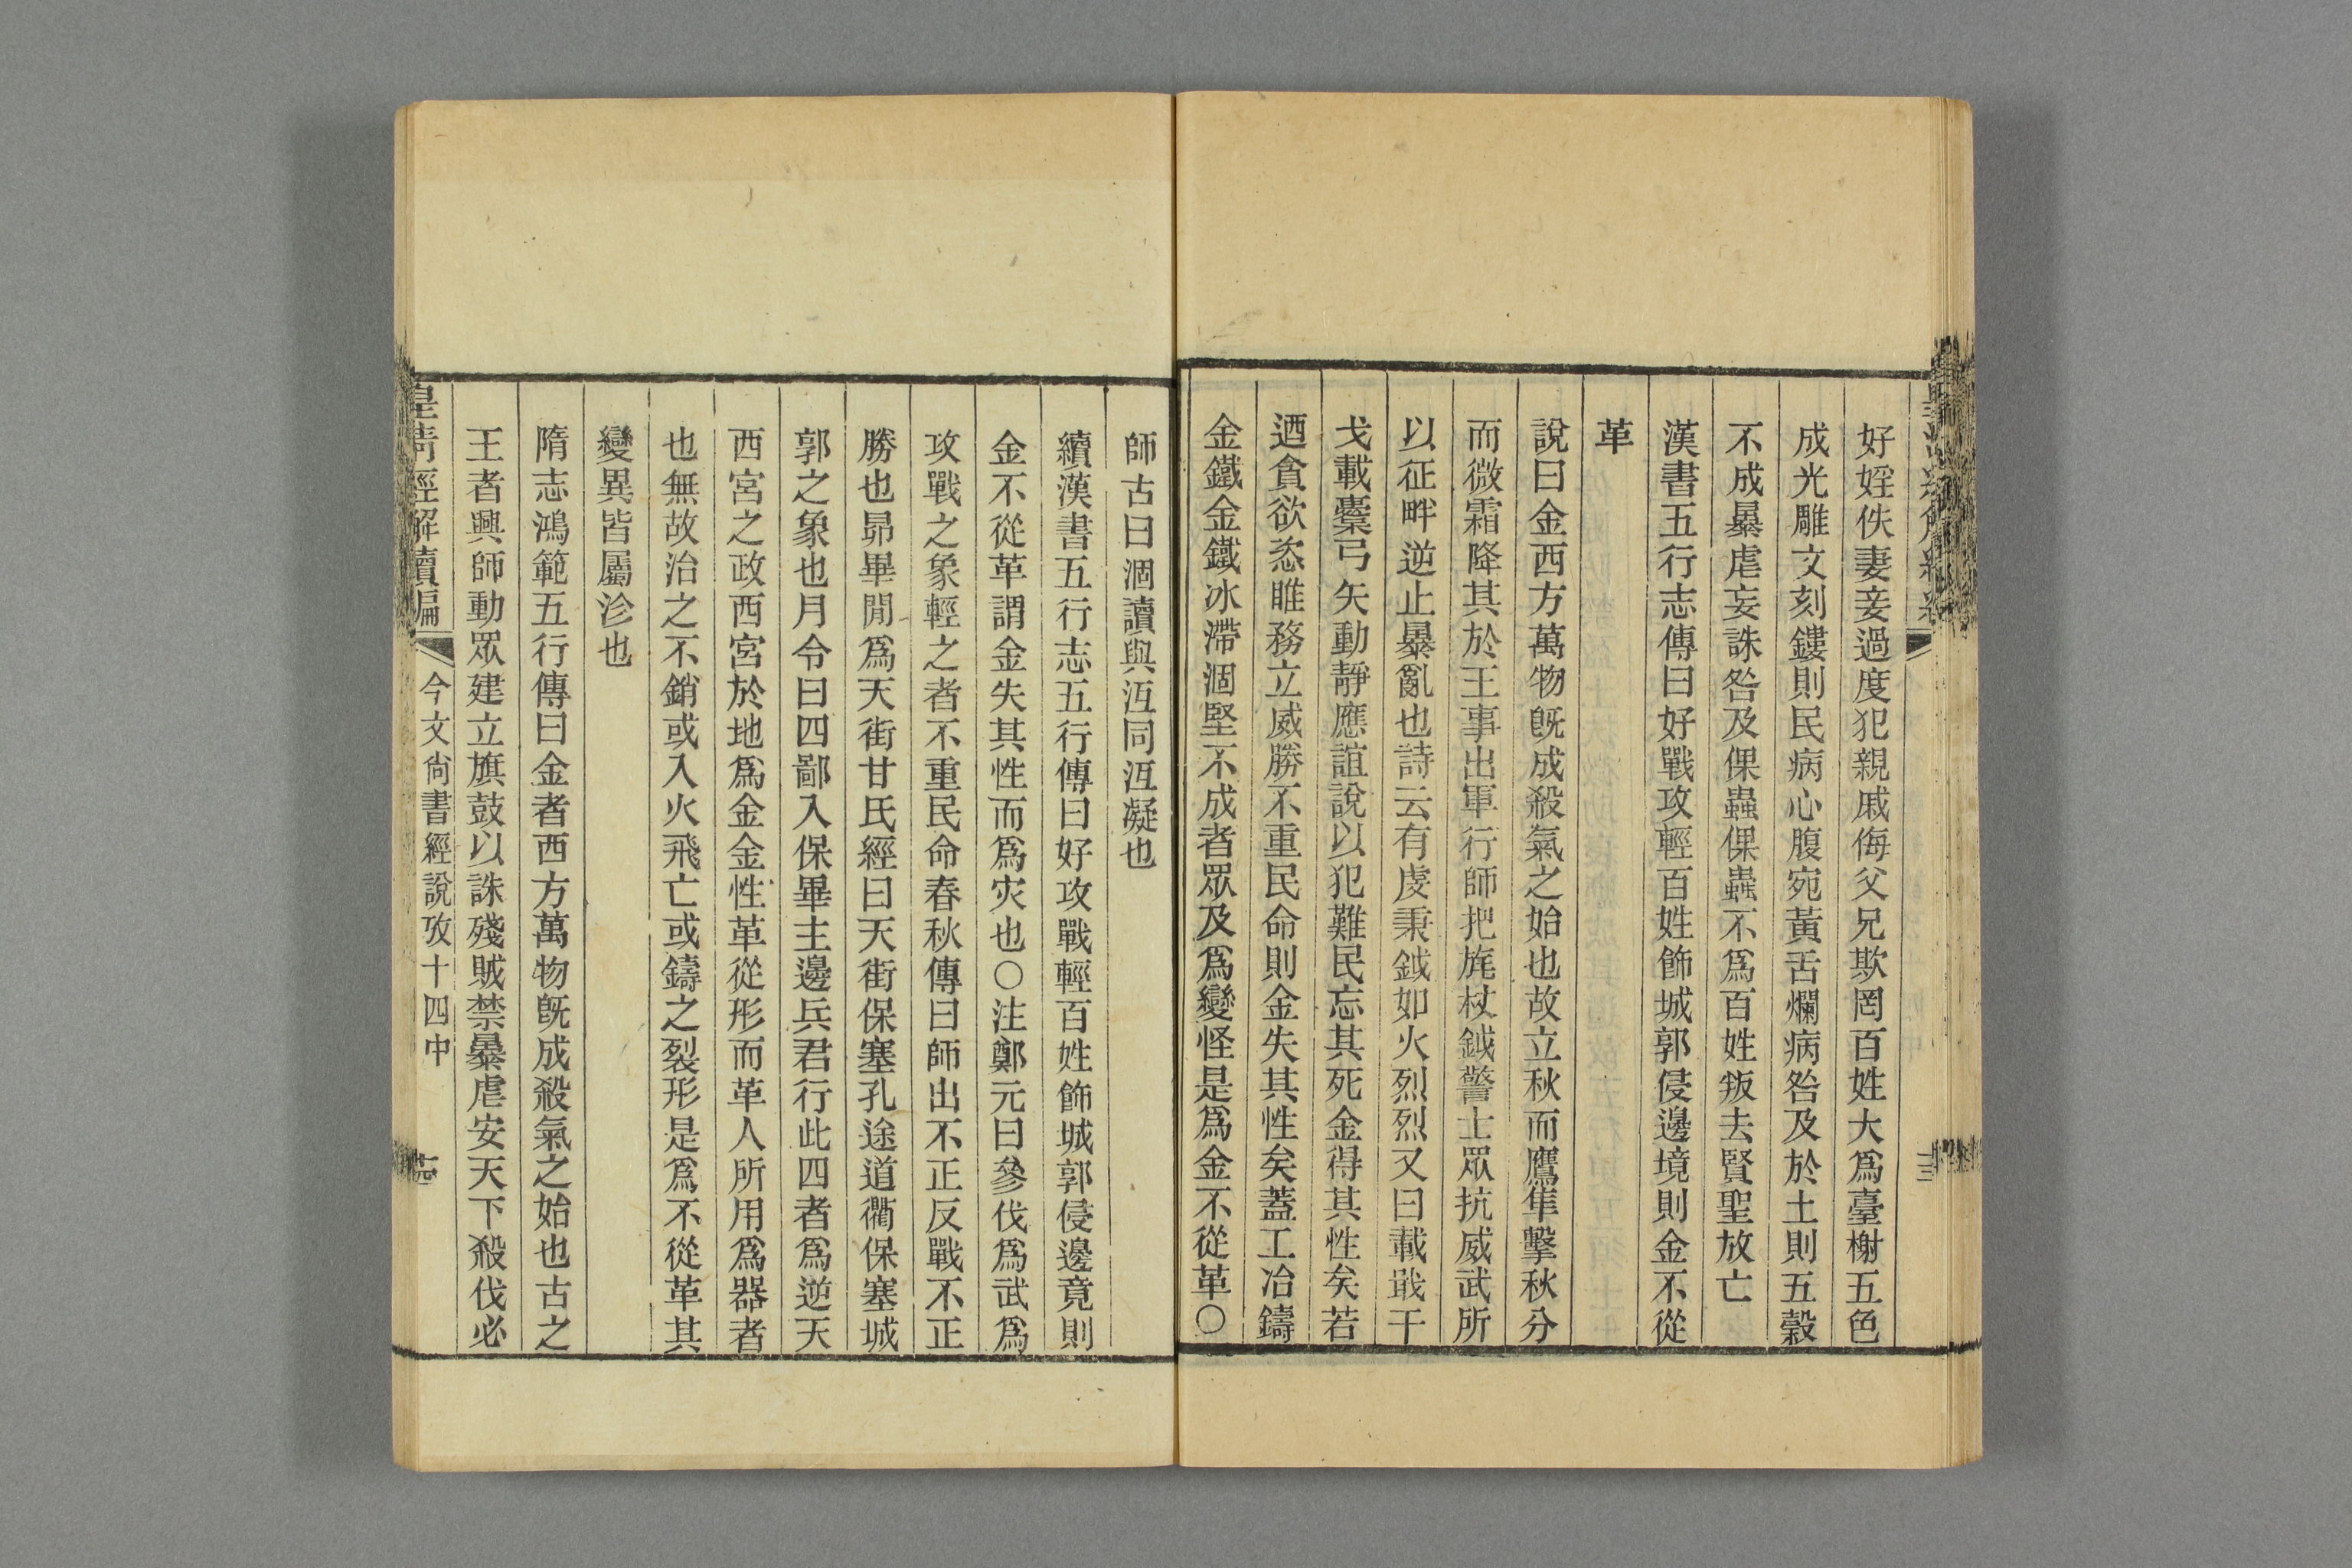 好婬佚妻妾過度犯親戚侮父兄欺罔百姓大爲臺榭五色
成光雕文刻鏤則民病心腹宛黃舌爛病咎及於土則五穀
不成暴虐妄誅咎及倮蟲倮蟲不爲百姓叛去賢聖放亡
漢書五行志傳曰好戰攻輕百姓飾城郭侵邊境則金不從
革
說曰金西方萬物旣成殺氣之始也故立秋而鷹隼擊秋分
而微霜降其於王事出軍行師把旄杖鉞警士眾抗威武所
以征畔逆止暴亂也詩云有虔秉鉞如火烈烈又曰載戢干
戈載櫜弓矢動靜應誼說以犯難民忘其死金得其性矣若
迺貪欲恣睢務立威勝不重民命則金失其性矣蓋工冶鑄
金鐵金鐵冰滯涸堅不成者眾及爲變怪是爲金不從革○
十三
師古曰涸讀與沍同沍凝也
續漢書五行志五行傳曰好攻戰輕百姓飾城郭侵邊竟則
金不從革謂金失其性而爲灾也○注鄭元曰參伐爲武爲
攻戰之象輕之者不重民命春秋傳曰師出不正反戰不正
勝也昴畢閒爲天街甘氏經曰天街保塞孔途道衢保塞城
郭之象也月令曰四鄙入保畢主邊兵君行此四者爲逆天
西宮之政西宮於地爲金金性革從形而革人所用爲器者
也無故治之不銷或入火飛亡或鑄之裂形是爲不從革其
變異皆屬沴也
隋志鴻範五行傳曰金者西方萬物旣成殺氣之始也古之
王者興師動眾建立旗鼓以誅殘賊禁暴虐安天下殺伐必
皇清經解續編 今文尙書經說攷十四中